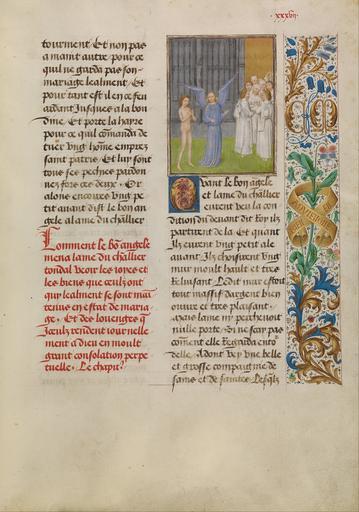 .xxxvii.
tourment. Et non pas
a maint autre pour ce
quil ne garda pas son
mariage lealment. Et
pour tant est il en ce feu
ardant Jusques a la bou
dine. Et porte la hayre
pour ce quil commanda de
tuer ung home empres
saint patris. Et lui sont
tous ses pechies pardon
nez fors ces deux. Or
alons encores ung pe
tit avant dist le bon an
gele a lame du challier
Comment le bon angele
mena lame du challier
tondal veoir les ioyes et
les biens que ceulz ont
qui lealment se sont main
tenus en estat de maria
ge. Et des louenges que
Iceulz rendent iournelle
ment a dieu en moult
grant consolation perpe
tuelle. Le chapitre
Quant le bon angele
et lame du challier
eurent veu la con
dition du devant dit Roy ilz
partirent de la. Et quant
Ilz eurent ung petit ale
avant Ilz choisirent ung
mur moult hault et tres
Reluisant. Ledit mur estoit
tout massif dargent bien
ouvre et tres plaisant.
Mais lame ny percevoit
nulle porte. Si ne scay pas
comment elle Regarda ento
delle. Adont vey une belle
et grosse compaignie de
sains et de saintes. Lesquelz